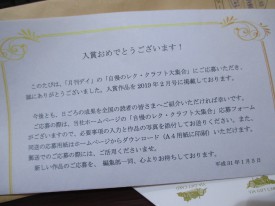 入賞おめでとうございます！
このたびは、「月刊デイ」の「自慢のレク・クラフト大集合」にご応募いただき、
誠にありがとうございます。入賞作品を2019年2月号に掲載しております。
今後とも、日ごろの成果を全国の読者の皆さまへご紹介いただければ幸いです。
ご応募の際は、当社ホームページの「自慢のレク・クラフト大集合」応募フォーム
がございますので、必要事項の入力と作品の写真を添付してお送りください。また、
同送の応募用紙はホームページからダウンロード（A4用紙に印刷）いただけます。
郵送でのご応募の際には、ご活用くださいませ。
新しい作品のご応募を、編集部一同、心よりお待ちしております。
平成31年1月